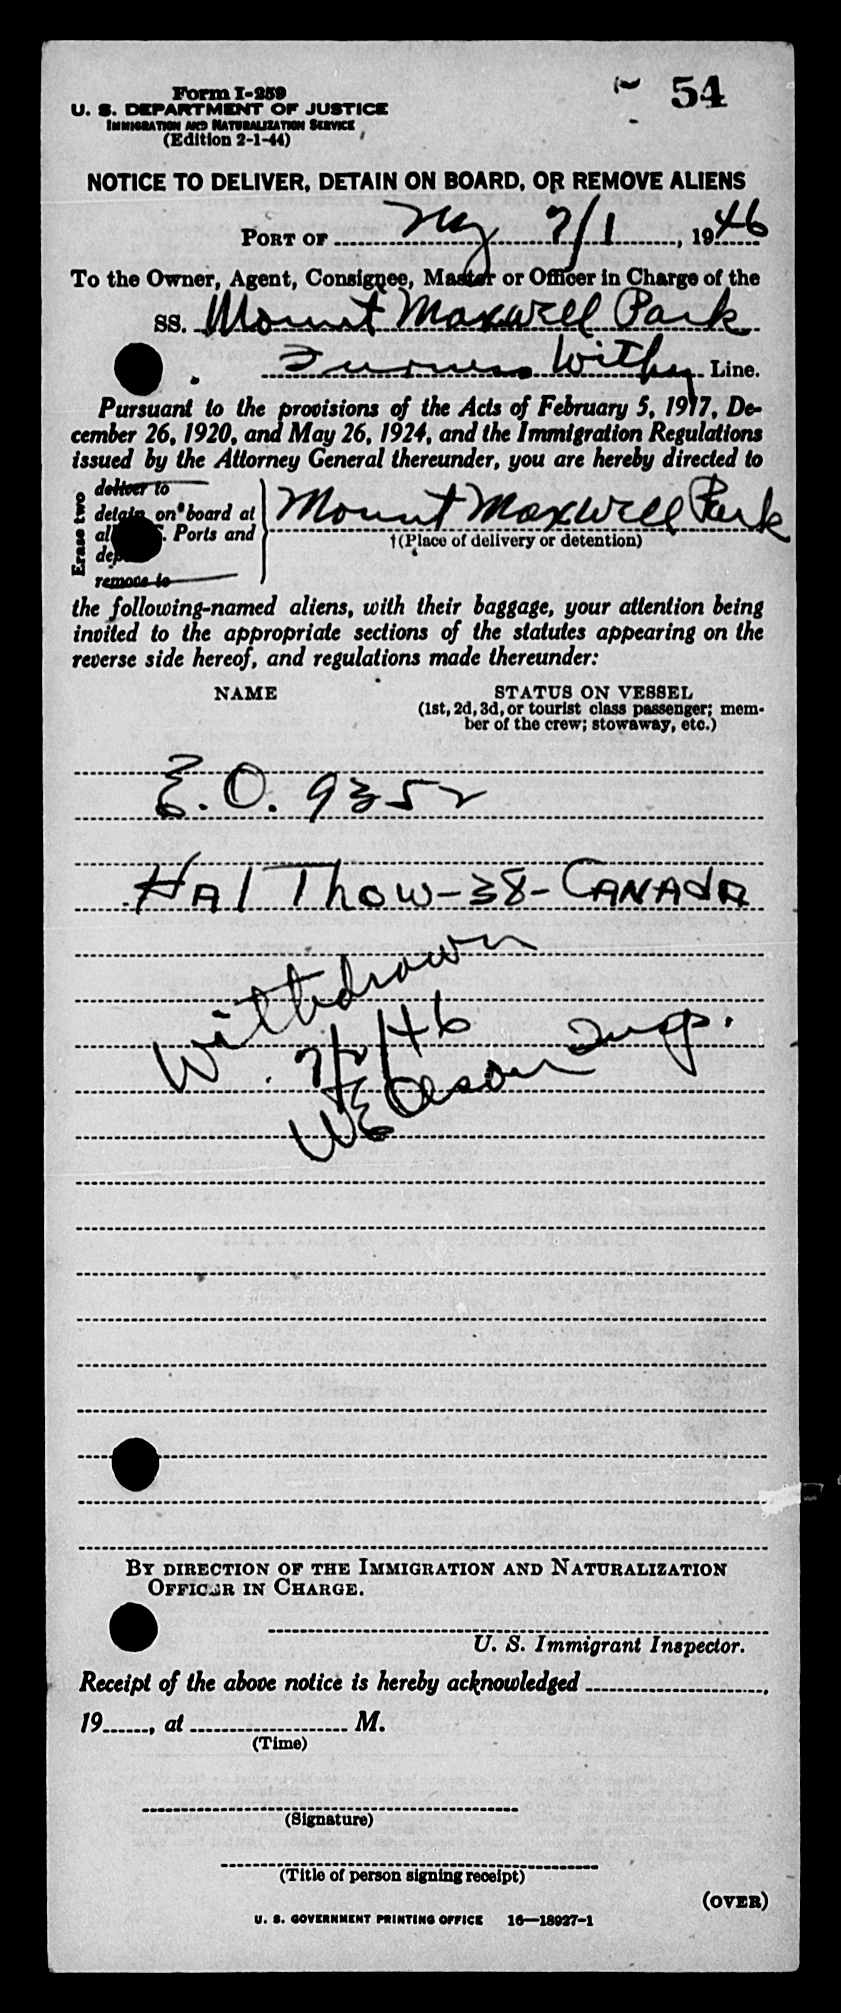 54
Form I-259
U. S. DEPARTMENT OF JUSTICE
IMMIGRATION AND NATURALIZATION SERVICE
(Edition 2-1-44)
NOTICE TO DELIVER, DETAIN ON BOARD, OR REMOVE ALIENS
PORT OF NY 7/1, 1946
To the Owner, Agent, Consignee, Master or Officer in Charge of the
SS. Mount Maxwell Park
Furness Withy Line.
Pursuant to the provisions of the Acts of February 5, 1917, De-
cember 26, 1920, and May 26, 1924, and the Immigration Regulations
issued by the Attorney General thereunder, you are hereby directed to
Erase two
deliver to
detain on board at
all Ports and
remove to
Mount Maxwell Park
†(Place of delivery or detention)
the following-named aliens, with their baggage, your attention being
invited to the appropriate sections of the statutes appearing on the
reverse side hereof, and regulations made thereunder:
NAME STATUS ON VESSEL
(1st, 2d, 3d, or tourist class passenger; mem-
ber of the crew; stowaway, etc.)
E.O. 9352
HAl ThOW-38-CANAdA
Withdrawn
7/2/46
WE Oleson Insp.
BY DIRECTION OF THE IMMIGRATION AND NATURALIZATION
OFFICER IN CHARGE.
U. S. Immigrant Inspector.
Receipt of the above notice is hereby acknowledged,
19, at M.
(Time)
(Signature)
(Title of person signing receipt)
(OVER)
U. S. GOVERNMENT PRINTING OFFICE 16—18927-1